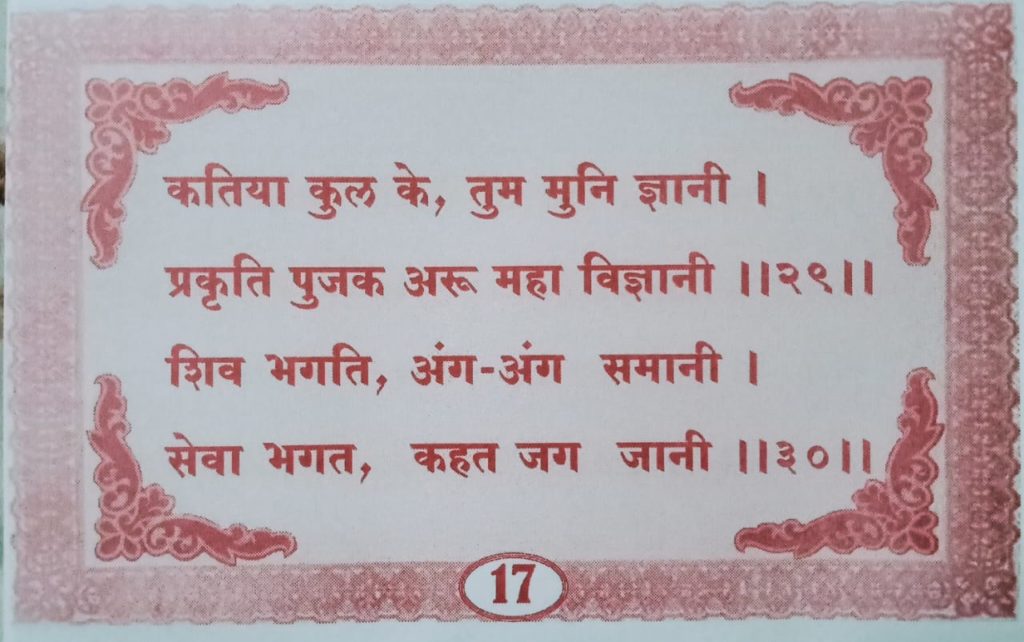 कतिया कुल के, तुम मुनि ज्ञानी ।
प्रकृति पुजक अरू महा विज्ञानी ।।२९।।
शिव भगति, अंग-अंग समानी ।
सेवा भगत, कहत जग जानी ।।३०।।
17